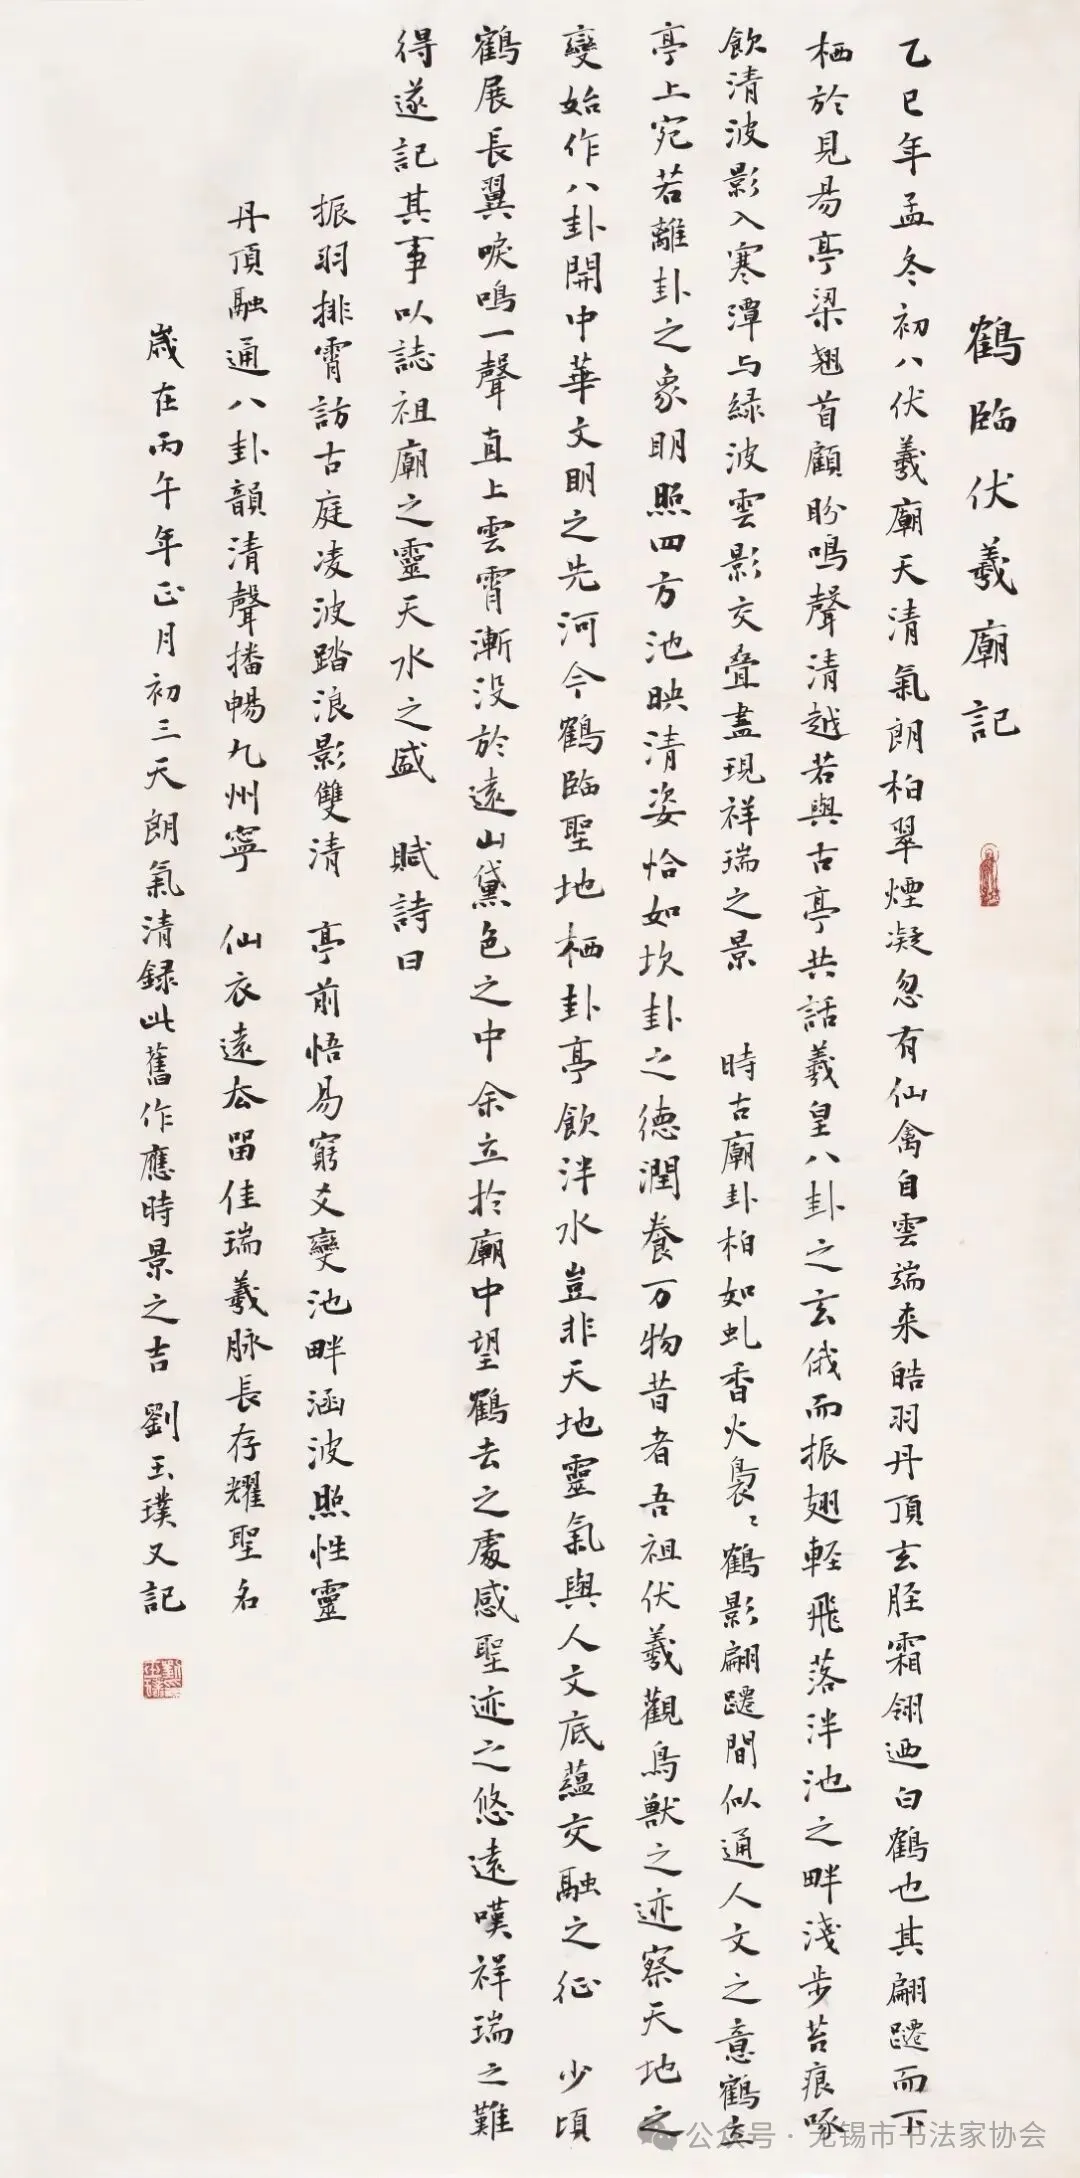 鶴臨伏羲廟記
乙巳年孟冬初八伏羲廟天清氣朗柏翠煙凝忽有仙禽自雲端来皓羽丹頂玄胫霜翎迺白鶴也其翩躚而下
栖於見易亭梁翘首顧盼鳴聲清越若與古亭共話羲皇八卦之玄俄而振翅輕飛落泮池之畔淺步苔痕啄
飲清波影入寒潭与緑波雲影交疊盡現祥瑞之景 時古廟卦柏如虬香火裊〻鶴影翩躚間似通人文之意鶴立
亭上宛若離卦之象明照四方池映清姿恰如坎卦之德潤養万物昔者吾祖伏羲觀鳥獸之迹察天地之
變始作八卦開中華文明之先河今鶴臨聖地栖卦亭飲泮水豈非天地靈氣與人文底蘊交融之征 少頃
鶴展長翼唳鳴一聲直上雲霄漸没於遠山黛色之中余立於廟中望鶴去之處感聖迹之悠遠嘆祥瑞之難
得遂記其事以誌祖廟之靈天水之盛 賦詩曰
振羽排霄訪古庭凌波踏浪影雙清 亭前悟易窮爻變池畔涵波照性靈
丹頂融通八卦韻清聲播暢九州寧 仙衣遠去留佳瑞羲脉長存耀聖名
歲在丙午年正月初三天朗氣清録此舊作應時景之吉 劉玉璞又記
公众号·无锡市书法家协会